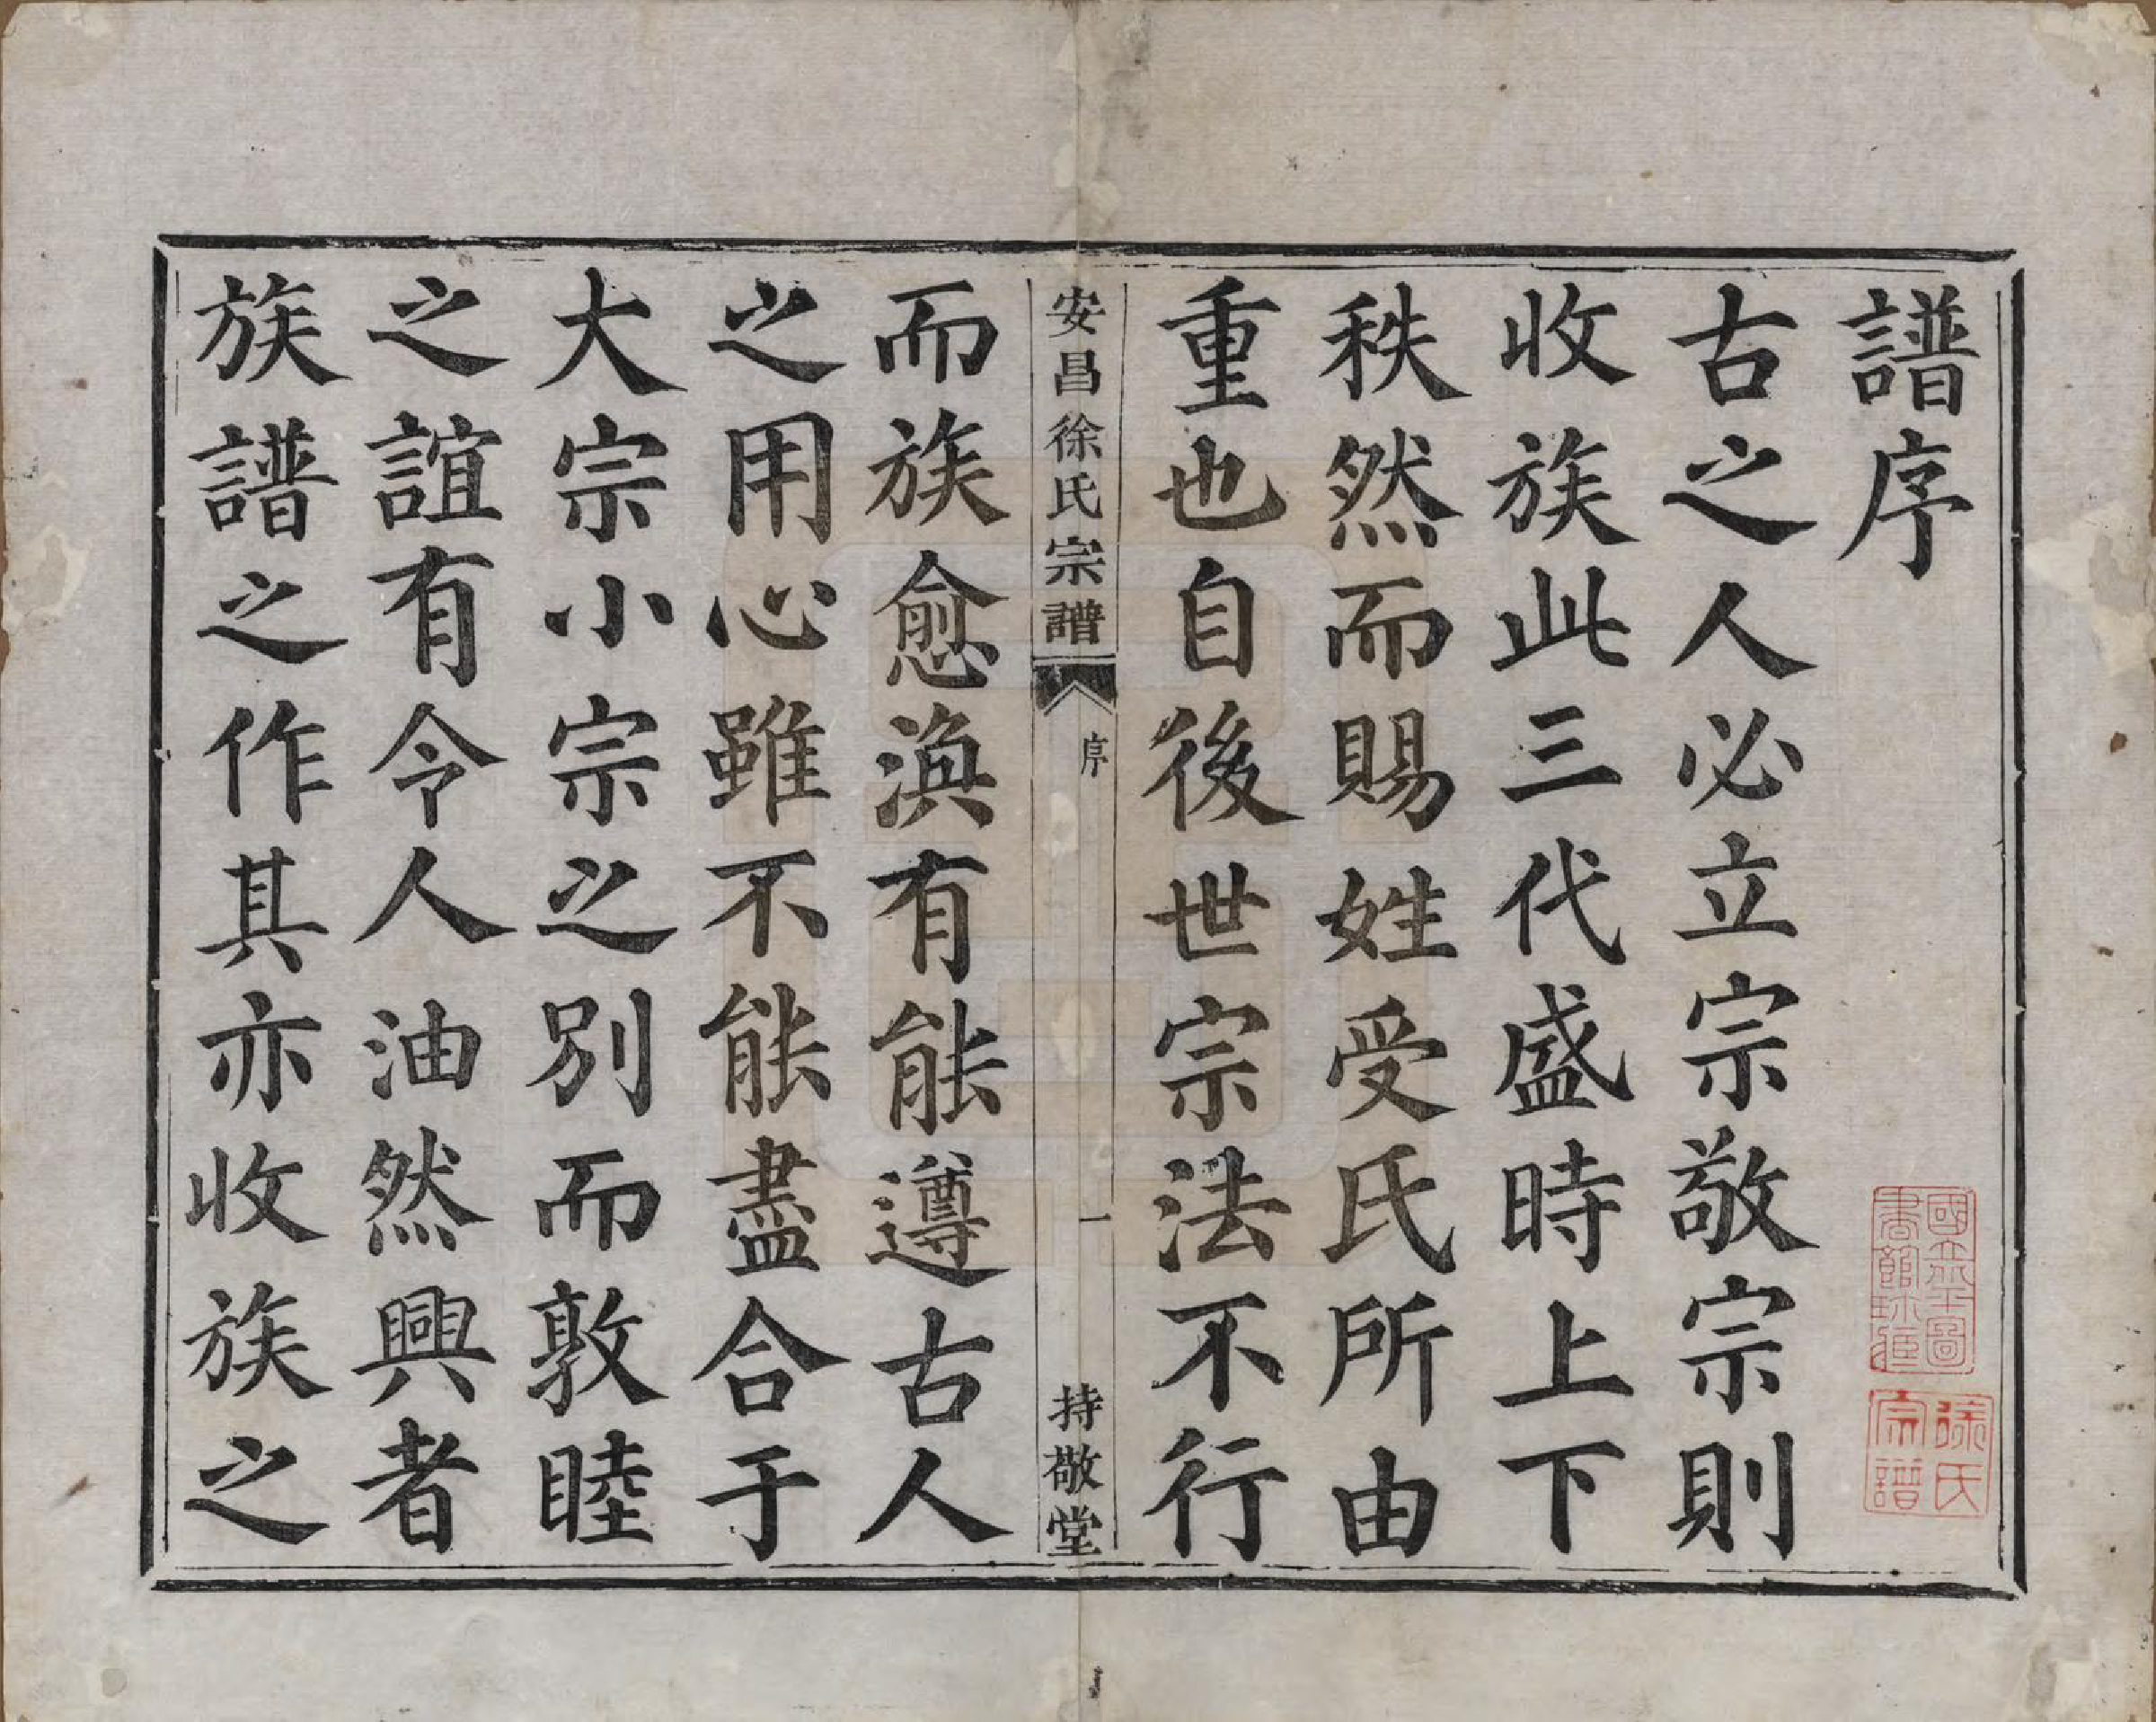 譜序
古之人必立宗敬宗則
收族此三代盛時上下
秩然而賜姓受氏所由
重也自後世宗法不行
安昌徐氏宗譜 序 一 持敬堂
而族愈渙有能遵古人
之用心雖不能盡合于
大宗小宗之別而敦睦
之誼有令人油然興者
族譜之作其亦收族之
國立北平圖
書館珍藏
徐氏
宗譜